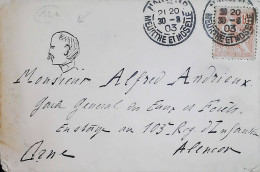 21 20
30 - 8
03
MEURTHE ET MOSELLE
20
30 - 8
03
MEURTHE ET MOSELLE
Monsieur Alfred Andrieux
Garde General des Eaux et Forêts
En stage au 103e Reg d'Infanterie
Orne Alencon